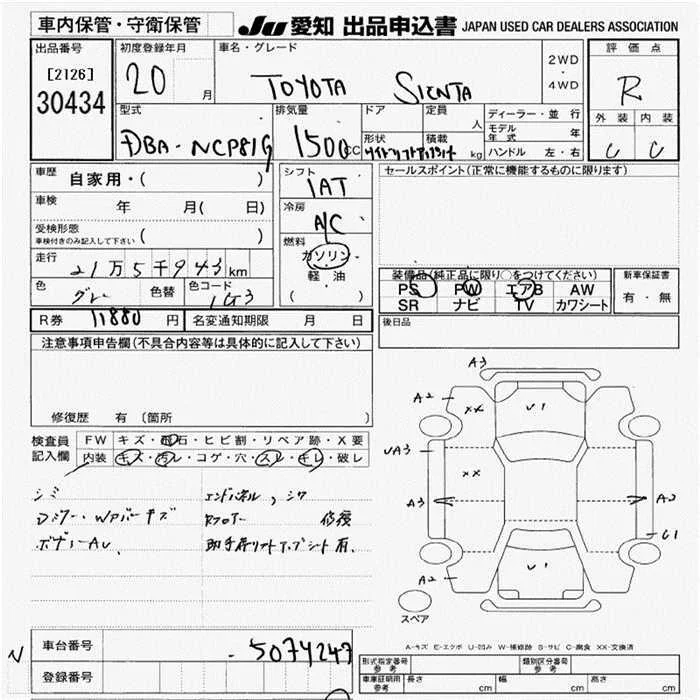 車内保管・守衛保管 JU 愛知 出品申込書 JAPAN USED CAR DEALERS ASSOCIATION
出品番号
[2126]
30434
初度登録年月
20 月
車名・グレード
TOYOTA SIENTA
2WD
・
4WD
評価点
R
外装 内装
C C
型式
DBA-NCP81G
排気量
1500 CC
ドア
定員
人
形状
積載
kg
ディーラー・並行
モデル年式 年
ハンドル 左・右
車歴 自家用・( )
車検 年 月( 日)
受検形態
車検付きのみ記入して下さい ( )
走行
21万5千943km
色 グレー 色替 色コード 1G3
シフト
1AT
冷房
A/C
燃料
ガソリン
軽・油
( )
セールスポイント(正常に機能するものに限ります)
装備品(純正品に限り○をつけてください)
PS PW エアB AW
SR ナビ TV カワシート
新車保証書
有・無
R券 11880 円 名変通知期限 月 日
後日品
注意事項申告欄(不具合内容等は具体的に記入して下さい)
修復歴 有 〔箇所
検査員
記入欄
FW キズ・飛石・ヒビ割・リペア跡・X要
内装 キズ・汚レ・コゲ・穴・スレ・キレ・破レ
シミ エンドパネル、シワ
Rフロアー 修復
助手席リフトアップシート有、
A3
A2
XX
U1
UA3
XX
A3
A2
C1
A2
U1
スペア
A-キズ E-エクボ U-凹み W-補修跡 S-サビ C-腐食 XX-交換済
N
車台番号 -5074247
登録番号
形式指定番号
参考
類別区分番号
参考
車庫証明用
参考
長さ cm 幅 cm 高さ cm